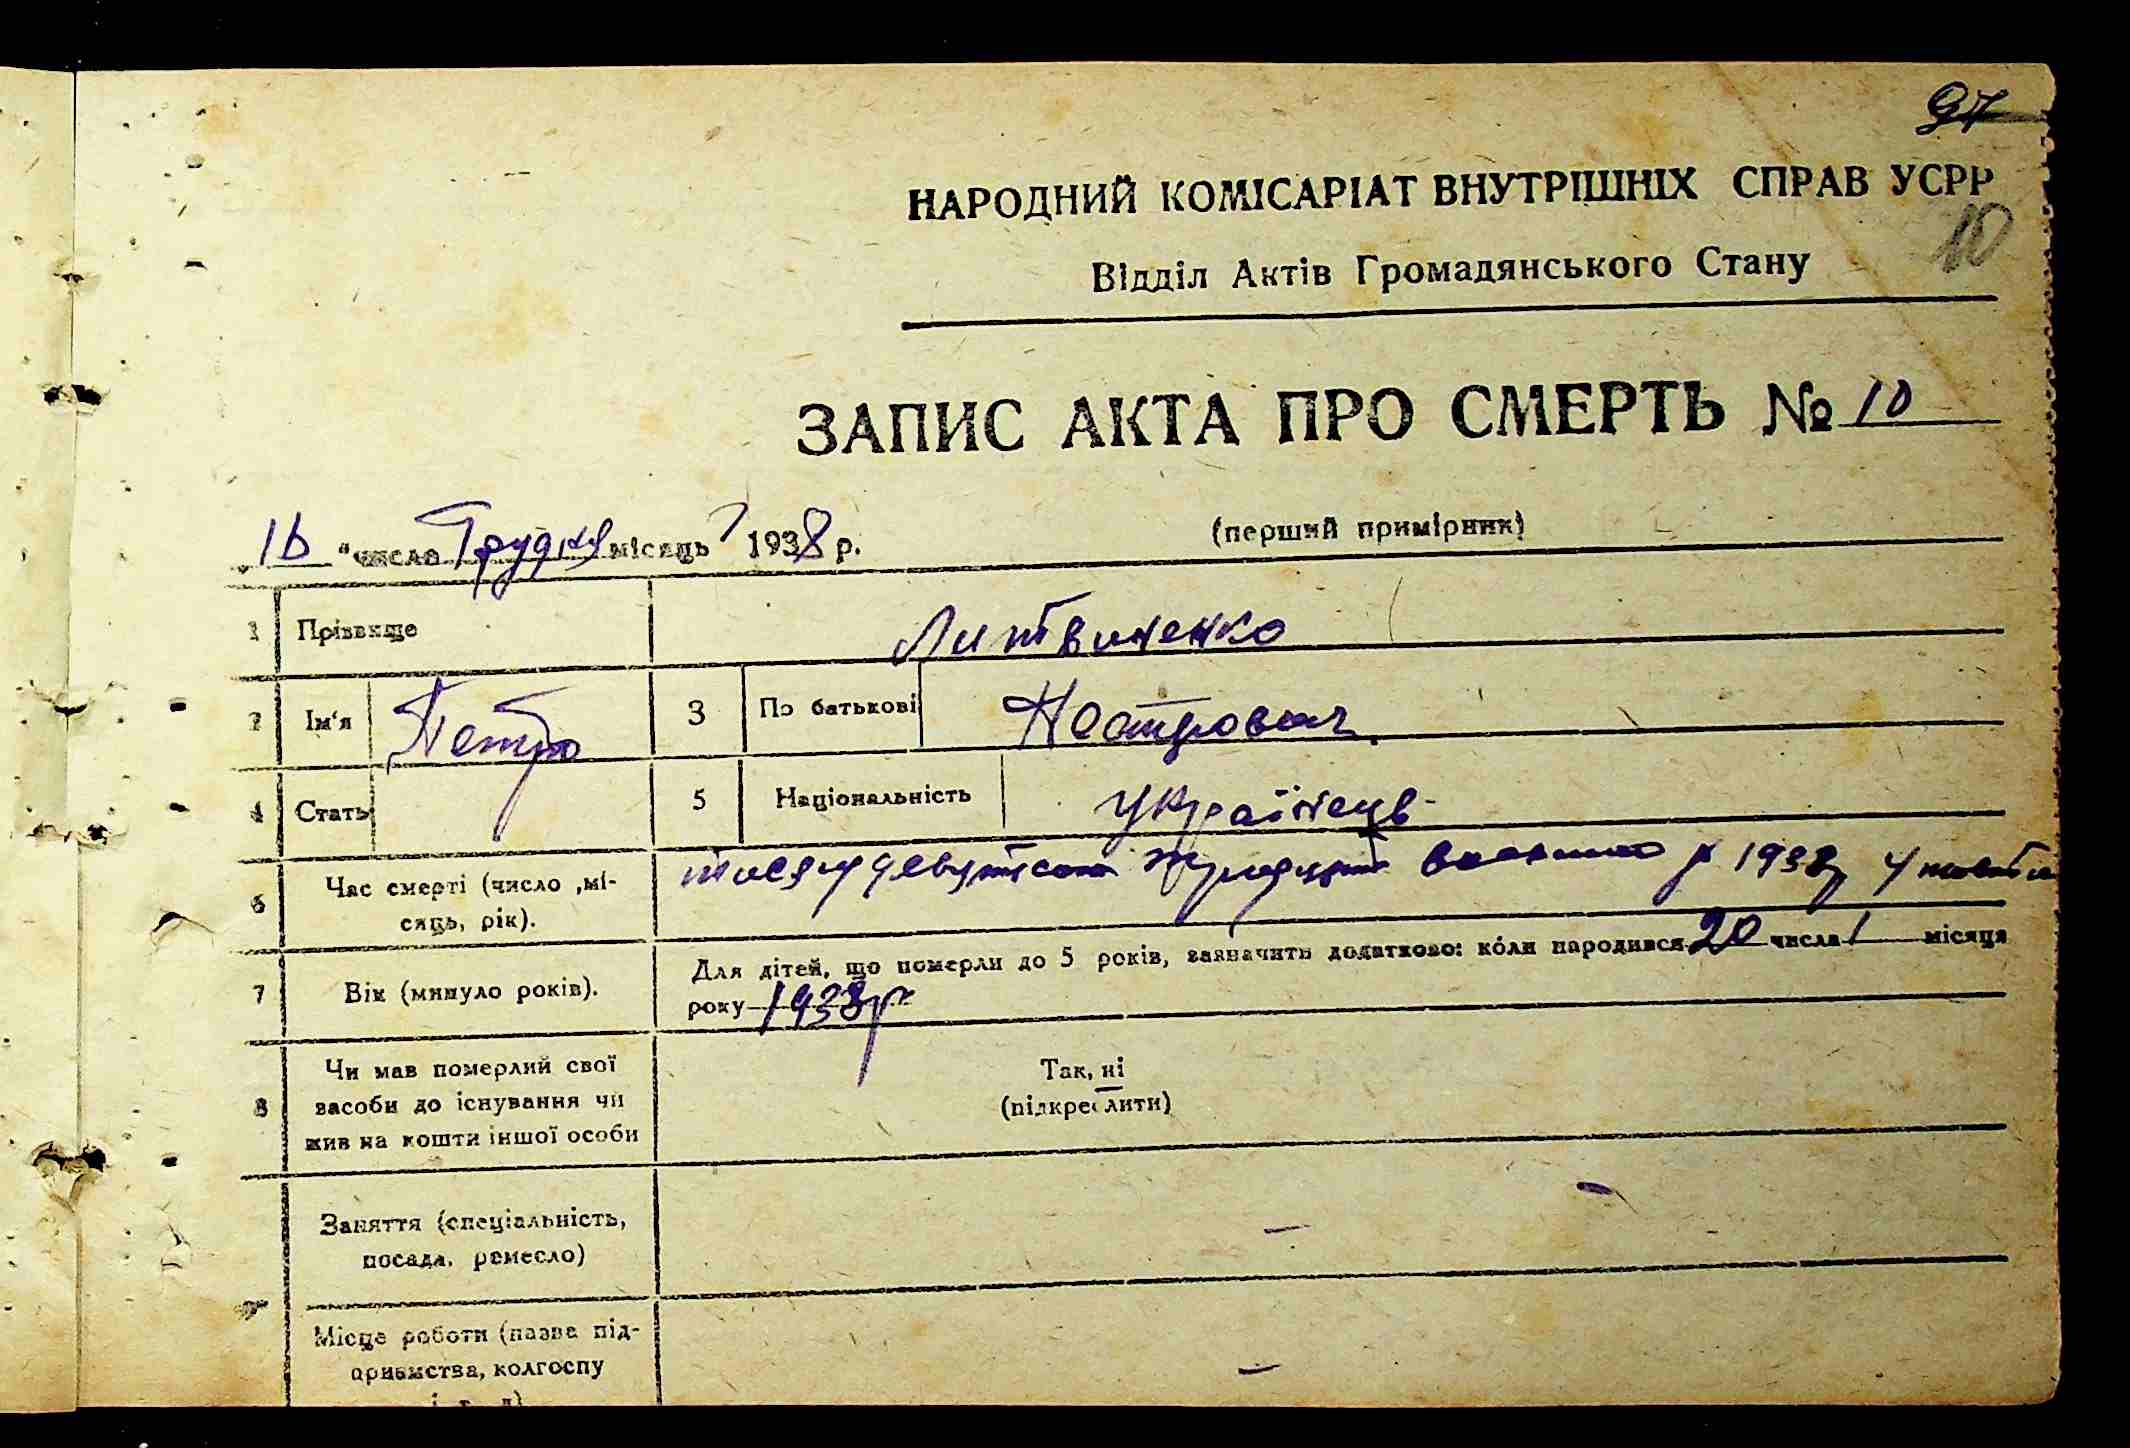 97
НАРОДНИЙ КОМІСАРІАТ ВНУТРІШНІХ СПРАВ УСРР
10
Відділ Актів Громадянського Стану
ЗАПИС АКТА ПРО СМЕРТЬ № 10
(перший примірник)
„16 “ число Грудня місяць 1938 р.
1 Прізвище Литвиненко
2 Ім‘я Петро 3 По батькові
4 Стать 5 Національність Українець
6 Час смерті (число ,мі-
сяць, рік). тисяча девятсот тридцять 1938
7 Вік (минуло років). Для дітей, що померли до 5 років, зазначить додатково: коли народився 20 числа 1 місяця
року 1938р
8 Чи мав померлий свої
засоби до існування чи
жив на кошти іншої особи
Так, ні
(підкреслити)
Заняття (спеціальність,
посада, ремесло) —
Місце роботи (назва під-
приємства, колгоспу —
і т. д)